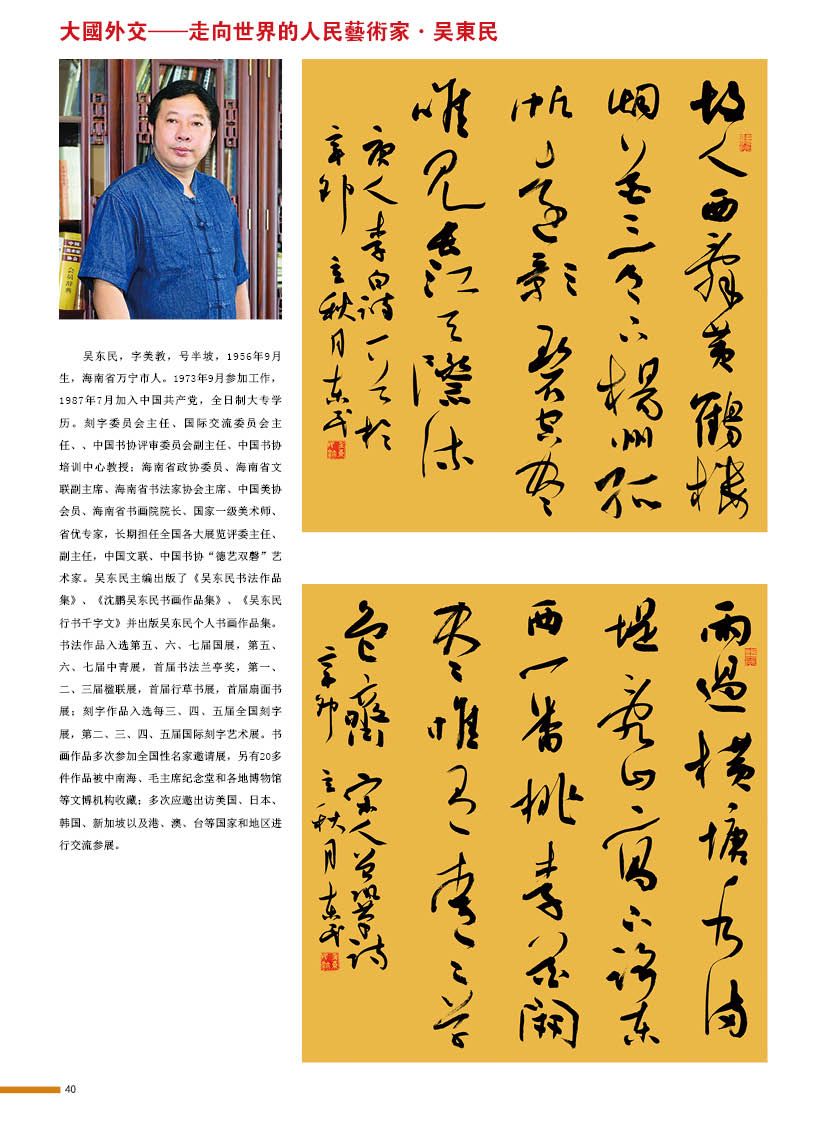 大國外交——走向世界的人民藝術家·吴東民
中国
美术家
协会
会员辞典
吴东民，字美教，号半坡，1956年9月
生，海南省万宁市人。1973年9月参加工作，
1987年7月加入中国共产党，全日制大专学
历。刻字委员会主任、国际交流委员会主
任、、中国书协评审委员会副主任、中国书协
培训中心教授；海南省政协委员、海南省文
联副主席、海南省书法家协会主席、中国美协
会员、海南省书画院院长、国家一级美术师、
省优专家，长期担任全国各大展览评委主任、
副主任，中国文联、中国书协“德艺双磬”艺
术家。吴东民主编出版了《吴东民书法作品
集》、《沈鹏吴东民书画作品集》、《吴东民
行书千字文》并出版吴东民个人书画作品集。
书法作品入选第五、六、七届国展，第五、
六、七届中青展，首届书法兰亭奖，第一、
二、三届楹联展，首届行草书展，首届扇面书
展；刻字作品入选每三、四、五届全国刻字
展，第二、三、四、五届国际刻字艺术展。书
画作品多次参加全国性名家邀请展，另有20多
件作品被中南海、毛主席纪念堂和各地博物馆
等文博机构收藏；多次应邀出访美国、日本、
韩国、新加坡以及港、澳、台等国家和地区进
行交流参展。
故人西辞黄鹤楼
烟花三月下楊州孤
帆远影碧空尽
唯见长江天際流
唐人李白诗一首於
辛卯立秋月东民
雨過横塘水满
堤乱山高下路东
西一番桃李花開
尽惟有青青草
色齊 宋人曾巩诗
辛卯立秋月东民
40